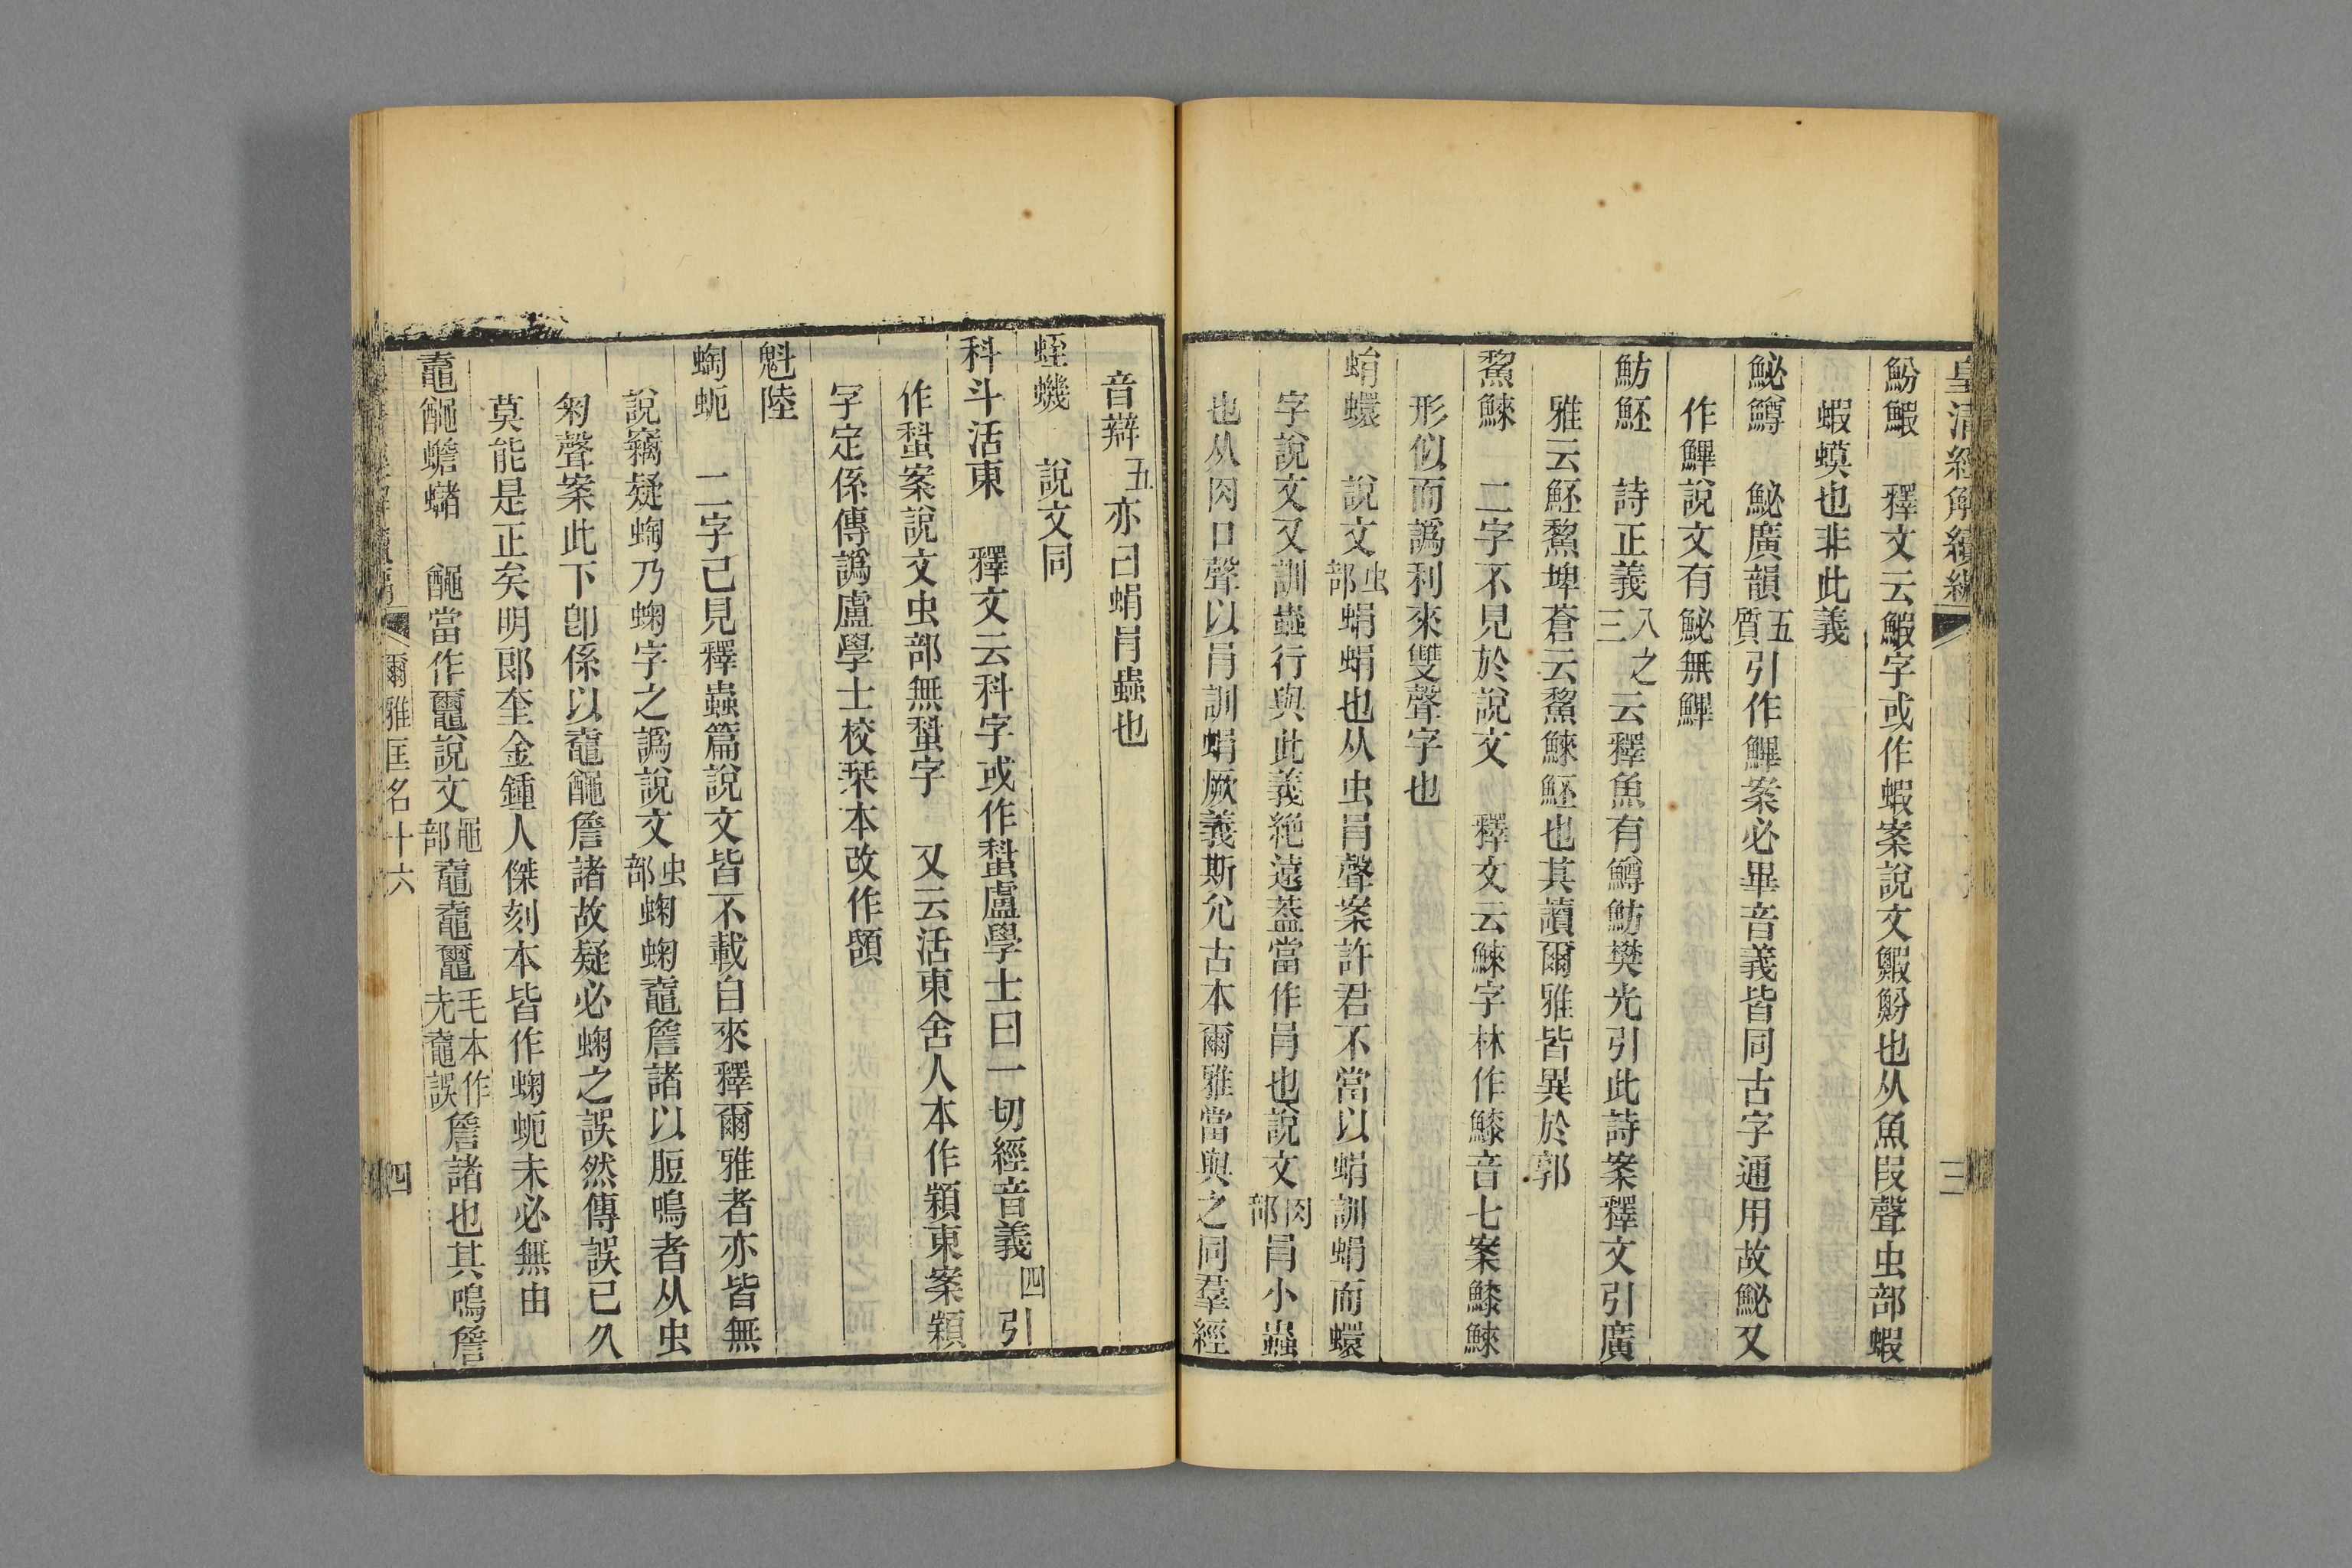 皇清經解續編
三
魵鰕　釋文云鰕字或作蝦案說文鰕魵也从魚叚聲虫部蝦
蝦蟆也非此義
鮅鱒　鮅廣韻五質引作鷝案必畢音義皆同古字通用故鮅又
作鷝說文有鮅無鷝
魴魾　詩正義八之三云釋魚有鱒魴樊光引此詩案釋文引廣
雅云魾鯬埤蒼云鯬鯠魾也其讀爾雅皆異於郭
鯬鯠　二字不見於說文　釋文云鯠字林作鰲音七案鰲鯠
形似而譌利來雙聲字也
蜎蠉　說文虫部蜎蜎也从虫肙聲案許君不當以蜎訓蜎而蠉
字說文又訓蟲行與此義絶遠葢當作肙也說文肉部肙小蟲
也从肉口聲以肙訓蜎厥義斯允古本爾雅當與之同羣經
音辯五亦曰蜎肙蟲也
蛭蟣　說文同
科斗活東　釋文云科字或作蝌盧學士曰一切經音義四引
作蝌案說文虫部無蝌字　又云活東舍人本作顆東案顆
字定係傳譌盧學士校栞本改作頢
魁陸
蜪蚅　二字已見釋蟲篇說文皆不載自來釋爾雅者亦皆無
說竊疑蜪乃蜠字之譌說文虫部蜠蜠鼀詹諸以脰鳴者从虫
匊聲案此下卽係以鼀𪓰詹諸故疑必蜠之誤然傳誤已久
莫能是正矣明郎奎金鍾人傑刻本皆作蜠蚅未必無由
鼀𪓰蟾蠩　𪓰當作𪓿說文黽部鼀鼀𪓿毛本作圥鼀誤詹諸也其鳴詹
爾雅匡名十六
四